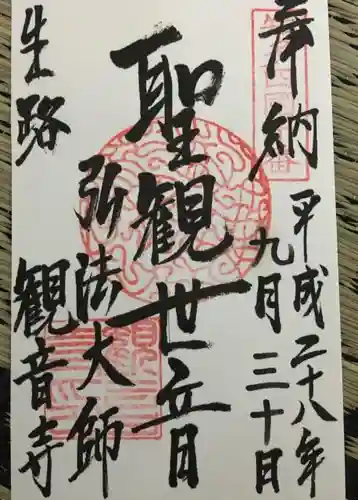 奉納
平成二十八年
九月三十日
聖観世音
弘法大師
生路
観音寺